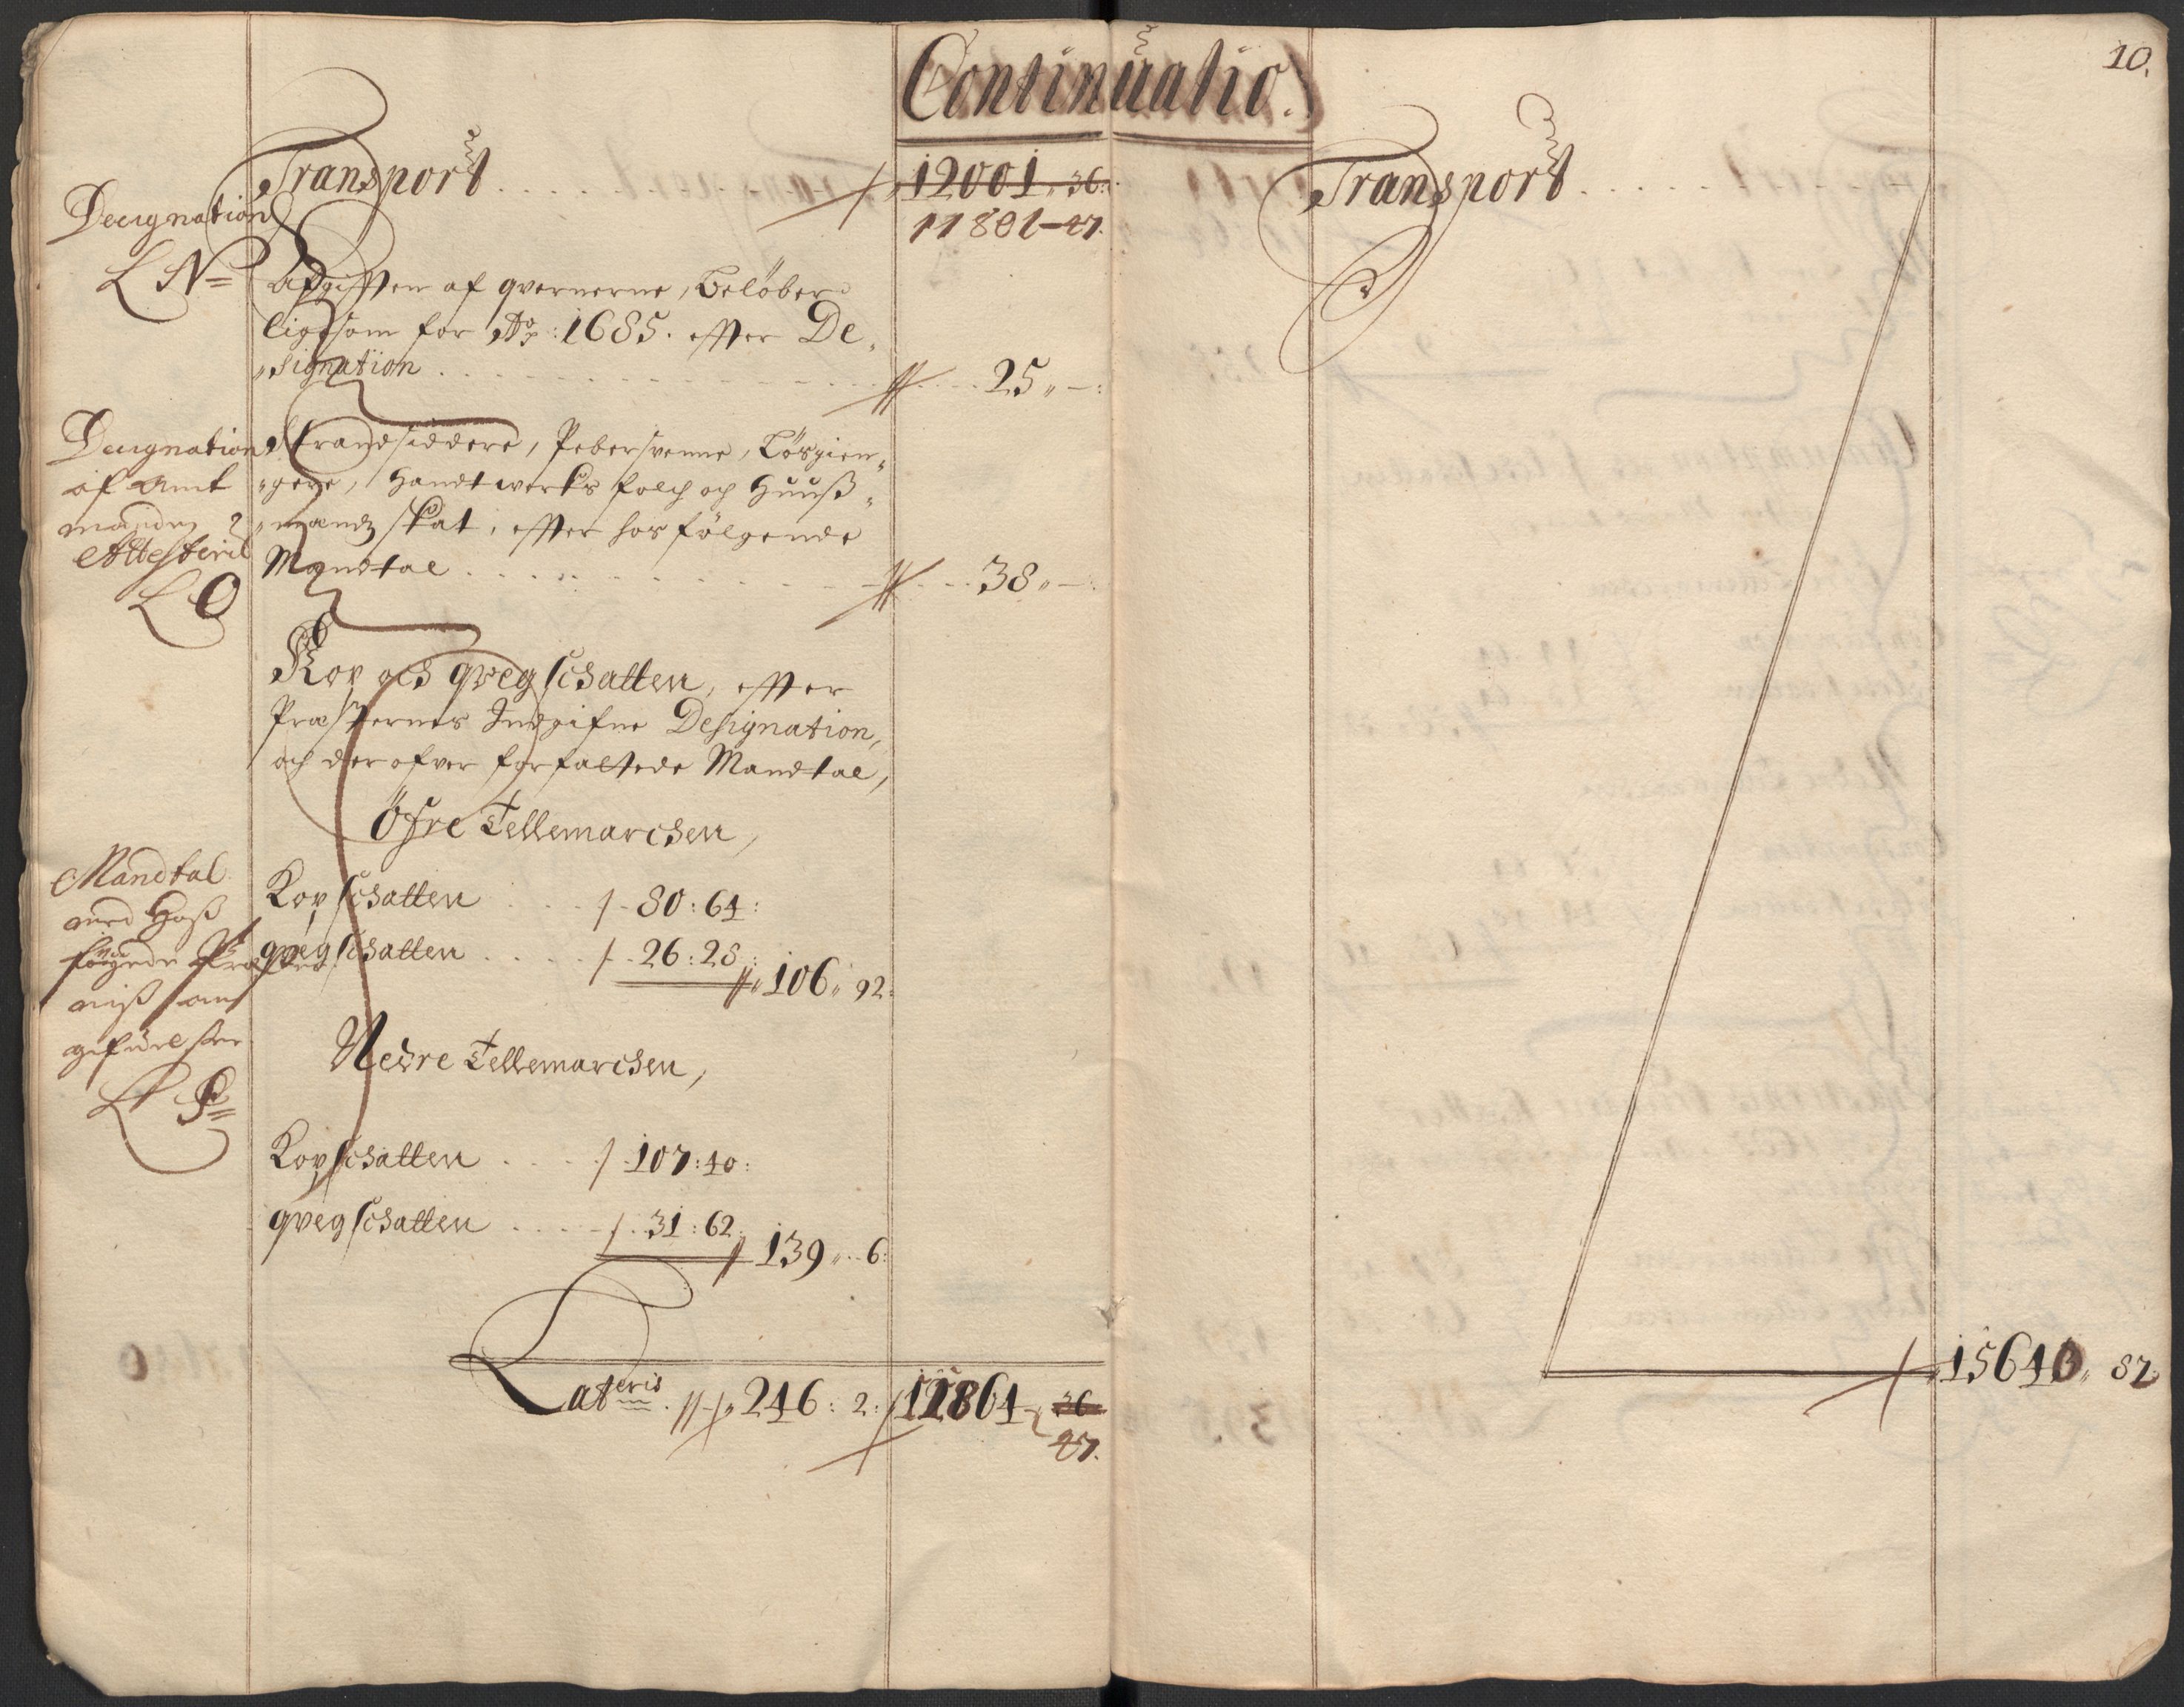 Continuatio.
10.
Transport . . . . . 12001 „ 36:
11801–47.
Designation
L N=
Afgifften af qvernerne, Beløber
ligesom for Ao: 1685. effter De„
„signation . . . . . 25 „ – :
Designation
af Amt
manden
Attesterit
L O
Strandsiddere, Pebersvenne, Løsgien„
„gere, Handtwerks folch och Huuß„
„mandz skat, effter hosfølgende
Mandtal . . . . . 38 „ – :
Kop och qvegschatten, effter
Præsternes Indgifne Designation,
och derofver forfattede Mandtal,
Öfre Tellemarchen,
Mandtal
med Hoß
følgende
L P=
Kopschatten . . . . 80 : 64 :
qvegschatten . . . . 26 : 28 :
106 „ 92 :
Nedre Tellemarchen,
Kopschatten . . . . 107 : 40 :
qvegschatten . . . . 31 : 62 :
139 „ 6 :
Lateris . 246 : 2 : 11864 – 36
47.
Transport . . . . .
15640 „ 82